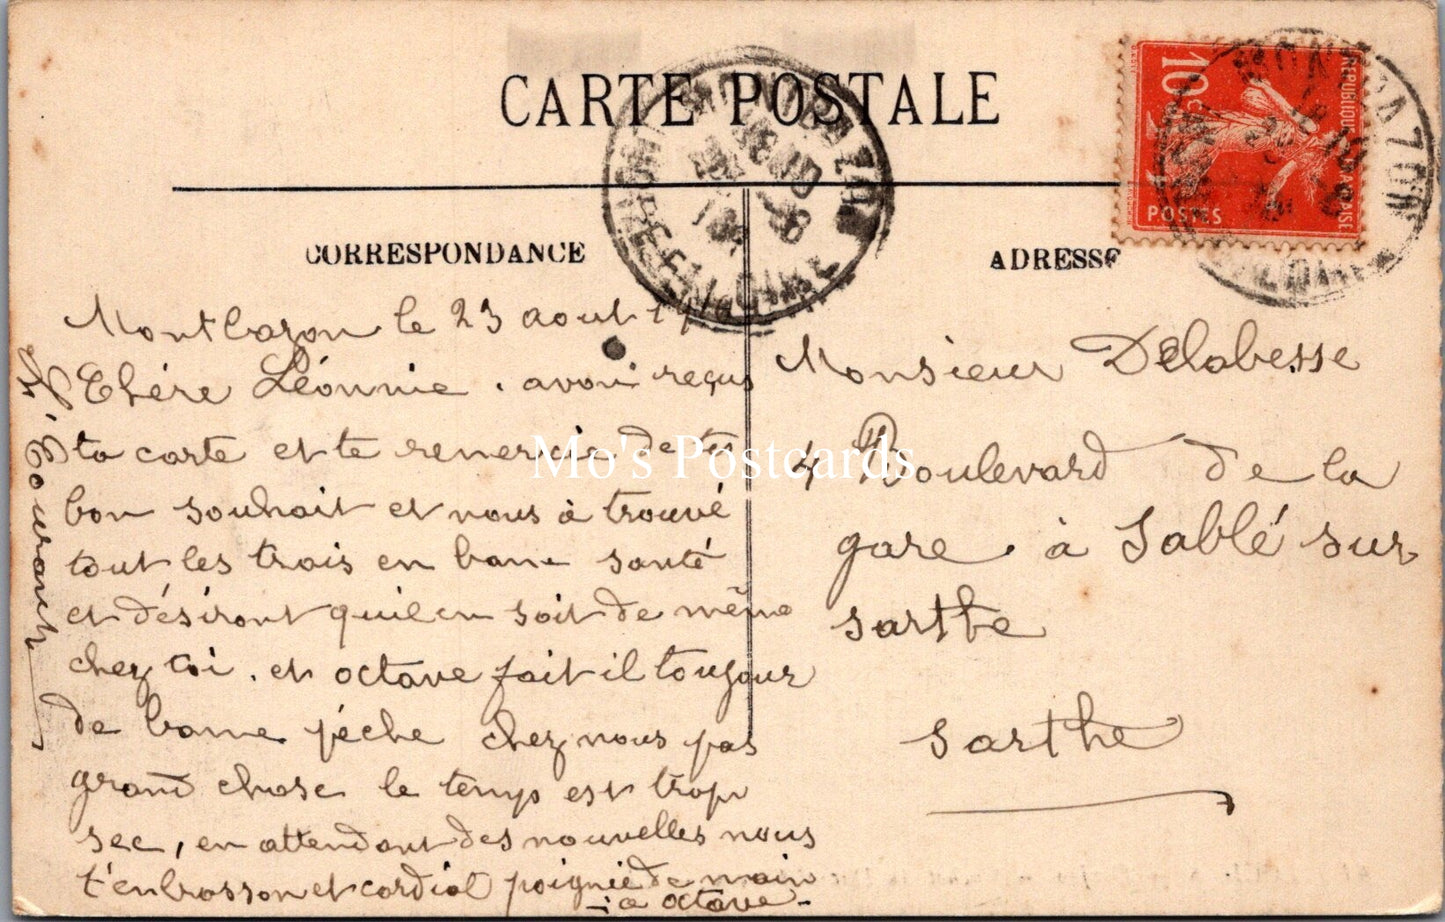 CARTE POSTALE
CORRESPONDANCE
Montbazon le 23 aout
Chére Léonnie. avoir reçus
ta carte et te remercie de tes
bon souhait et nous à trouvé
tout les trois en bonne santé
et désiront quil en soit de même
chez toi. et octave fait il toujour
de bonne pêche chez nous pas
grand chose le temps est trop
sec, en attendant des nouvelles nous
t'enbrasson et cordial poignie de main
a octave
ADRESSE
Monsieur Delabesse
4 Boulevard de la
gare à Sablé sur
sarthe
sarthe
10c
REPUBLIQUE FRANÇAISE
POSTES
MONTBAZON
INDRE-ET-LOIRE
Mo's Postcards